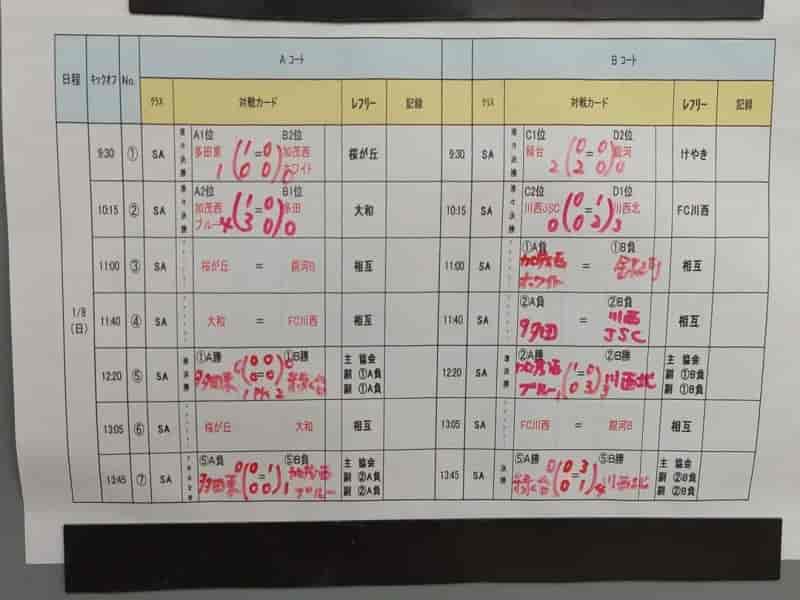 Aコート Bコート
日程 キックオフ No. クラス 対戦カード レフリー 記録 クラス 対戦カード レフリー 記録
1/8
(日)
A1位 B2位 C1位 D2位
9:30 ① SA 準々決勝 多田東 1 (1=0 0 0) 0 加茂西ホワイト 桜が丘 9:30 SA 準々決勝 緑台 2 (0=0 2 0) 0 銀河 けやき
A2位 B1位 C2位 D1位
10:15 ② SA 準々決勝 加茂西ブルー 4 (1=0 3 0) 0 多田 大和 10:15 SA 準々決勝 川西JSC 0 (0=1 0 2) 3 川西北 FC川西
①A負 ①B負
11:00 ③ SA 桜が丘 = 銀河B 相互 11:00 SA 加茂西ホワイト = 銀河 相互
②A負 ②B負
11:40 ④ SA 大和 = FC川西 相互 11:40 SA 多田 = 川西JSC 相互
①A勝 ①B勝 主 協会 ②A勝 ②B勝 主 協会
12:20 ⑤ SA 準決勝 多田東 0 (0=0 0 0) 0 緑台 副 ①A負 12:20 SA 準決勝 加茂西ブルー 1 (1=0 0 3) 3 川西北 副 ①B負
1 PK 2 副 ①A負 副 ①B負
13:05 ⑥ SA 桜が丘 大和 相互 13:05 SA FC川西 = 銀河B 相互
⑤A負 ⑤B負 主 協会 ⑤A勝 ⑤B勝 主 協会
13:45 ⑦ SA 多田東 0 (0=1 0 0) 1 加茂西ブルー 副 ②A負 13:45 SA 決勝 緑台 0 (0=3 0 1) 4 川西北 副 ②B負
副 ②A負 副 ②B負